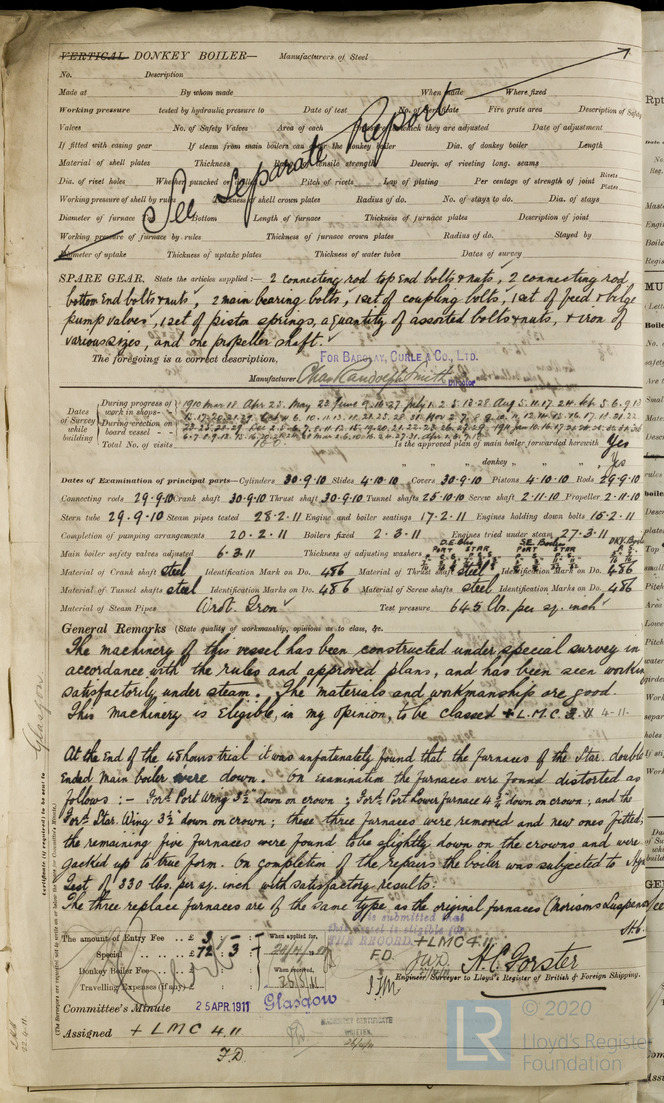 VERTICAL DONKEY BOILER— Manufacturers of Steel
No. Description
Made at By whom made When made Where fixed
Working pressure tested by hydraulic pressure to Date of test No. of Certificate Fire grate area Description of Safety
Valves No. of Safety Valves Area of each which they are adjusted Date of adjustment
If fitted with easing gear If steam from main boilers can enter the donkey boiler Dia. of donkey boiler Length
Material of shell plates Thickness Range of tensile strength Descrip. of riveting long. seams
Dia. of rivet holes Whether punched or drilled Pitch of rivets Lap of plating Per centage of strength of joint Rivets Plates
Working pressure of shell by rules Thickness of shell crown plates Radius of do. No. of stays to do. Dia. of stays
Diameter of furnace Bottom Length of furnace Thickness of furnace plates Description of joint
Working pressure of furnace by rules Thickness of furnace crown plates Radius of do. Stayed by
Diameter of uptake Thickness of uptake plates Thickness of water tubes Dates of survey
See Separate Report
SPARE GEAR. State the articles supplied:— 2 connecting rod top end bolts & nuts, 2 connecting rod
bottom end bolts & nuts, 2 main bearing bolts, 1 set of coupling bolts, 1 set of feed & bilge
pump valves, 1 set of piston springs, a quantity of assorted bolts & nuts, & iron of
various sizes, and one propeller shaft.
The foregoing is a correct description,
FOR BARCLAY, CURLE & CO., LTD.
Manufacturer Chas Randolph Smith Director
Dates of Survey while building
During progress of work in shops - -
During erection on board vessel - -
Total No. of visits
Is the approved plan of main boiler forwarded herewith Yes
" " " donkey " " " Yes
Dates of Examination of principal parts—Cylinders 30.9.10 Slides 4.10.10 Covers 30.9.10 Pistons 4.10.10 Rods 29.9.10
Connecting rods 29.9.10 Crank shaft 30.9.10 Thrust shaft 30.9.10 Tunnel shafts 25.10.10 Screw shaft 2.11.10 Propeller 2.11.10
Stern tube 29.9.10 Steam pipes tested 28.2.11 Engine and boiler seatings 17.2.11 Engines holding down bolts 15.2.11
Completion of pumping arrangements 20.2.11 Boilers fixed 2.3.11 Engines tried under steam 27.3.11
Main boiler safety valves adjusted 6.3.11 Thickness of adjusting washers
Material of Crank shaft steel Identification Mark on Do. 486 Material of Thrust shaft steel Identification Mark on Do. 486
Material of Tunnel shafts steel Identification Marks on Do. 486 Material of Screw shafts steel Identification Marks on Do. 486
Material of Steam Pipes Wrot. Iron Test pressure 645 lbs. per sq. inch
General Remarks (State quality of workmanship, opinions as to class, &c.
The machinery of this vessel has been constructed under special survey in
accordance with the rules and approved plans, and has been seen workin
satisfactorily under steam. The materials and workmanship are good.
This machinery is Eligible, in my opinion, to be classed + L.M.C. 4-11.
At the end of the 48 hours trial it was unfortunately found that the furnaces of the Star. double
Ended Main boiler were down. On examination the furnaces were found distorted as
follows:- Ford. Port Wing 3½ down on crown; Ford. Port Lower furnace 4¾ down on crown, and the
Ford. Star. Wing 3½ down on crown; these three furnaces were removed and new ones fitted;
the remaining five furnaces were found to be slightly down on the crowns and were
jacked up to true form. On completion of the repairs the boiler was subjected to
Test of 330 lbs. per sq. inch with satisfactory results.
The three replace furnaces are of the same type as the original furnaces (Morisons Suspens
It is submitted that
this vessel is eligible for
THE RECORD. + LMC 4.11
F.D.
The amount of Entry Fee . . £ 3 : - : - When applied for,
Special . . £ 72 : 3 : -
Donkey Boiler Fee . . £
Travelling Expenses (if any) £ When received,
A. C. Forster
Engineer Surveyor to Lloyd's Register of British & Foreign Shipping.
Committee's Minute 25 APR. 1911 Glasgow
Assigned + LMC 4.11
F.D.
© 2020
LR
Lloyd's Register
Foundation